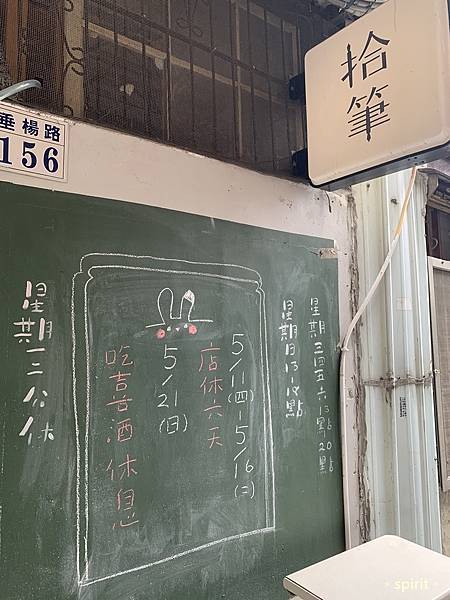 拾筆
垂楊路
156
星期三四五六13點-20點
星期日13-18點
5/11(四)-5/16(二)
店休六天
5/21(日)
吃吉古酒休息
星期一二公休
spirit